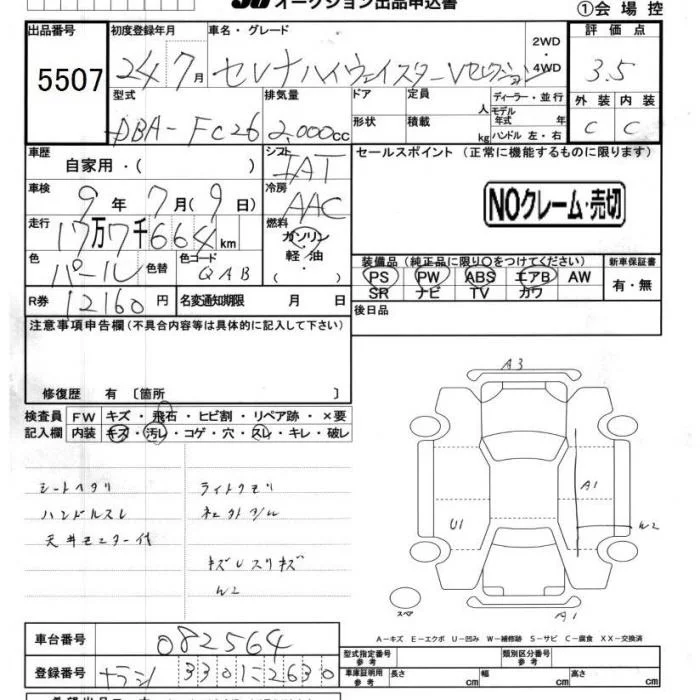 オークション出品申込書
①会場控
出品番号
5507
初度登録年月
24 7月
車名・グレード
セレナハイウェイスターVセレクション
2WD
・
4WD
評価点
3.5
型式
DBA-FC26
排気量
2,000cc
ドア
形状
定員
人
積載
kg
ディーラー・並行
モデル
年式 年
ハンドル 左・右
外装 内装
C C
車歴
自家用・( )
シフト
IAT
セールスポイント (正常に機能するものに限ります)
NOクレーム・売切
車検
9年7月(9日)
冷房
AAC
走行
17万7千664km
燃料
ガソリン
・
軽油
・
( )
色
パール
色替
色コード
QAB
装備品 (純正品に限り〇をつけてください)
PS PW ABS エアB AW
SR ナビ TV カワ
新車保証書
有・無
R券
12160円
名変通知期限 月 日
後日品
注意事項申告欄(不具合内容等は具体的に記入して下さい)
修復歴 有〔箇所 〕
検査員
記入欄
FW キズ・飛石・ヒビ割・リペア跡・×要
内装 キズ・汚レ・コゲ・穴・スレ・キレ・破レ
シートヘタリ
ハンドルスレ
天井モニター付
ライトクモリ
キズレスリキズ
W2
A3
A1
U1
W2
スペア
A1
A-キズ E-エクボ U-凹み W-補修跡 S-サビ C-腐食 XX-交換済
車台番号
082564
登録番号
ナラシ 330に2630
型式指定番号
参考
類別区分番号
参考
車庫証明用
参考
長さ cm 幅 cm 高さ cm